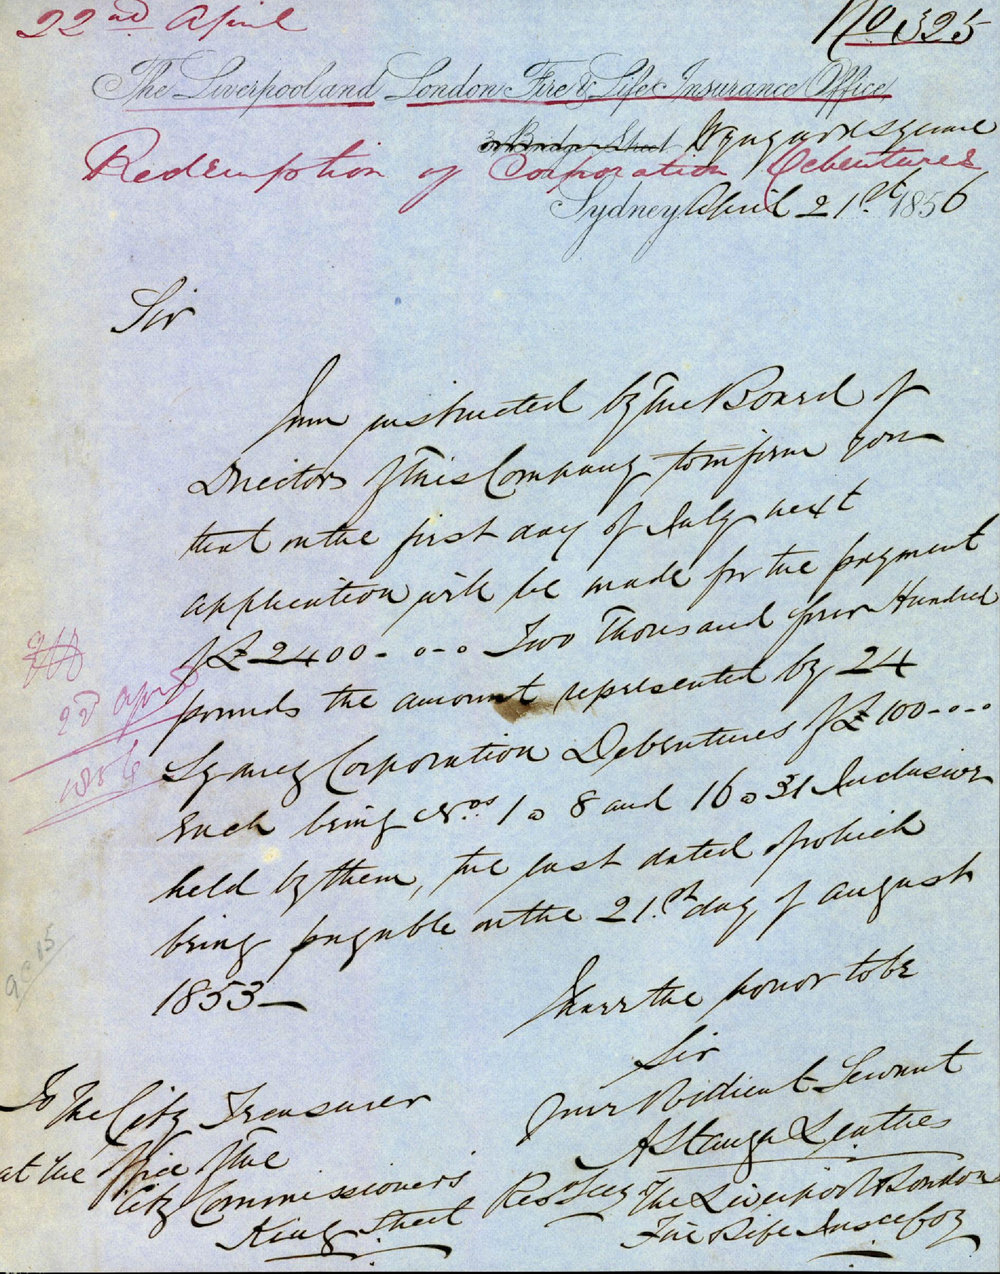 22nd April
No. 325
The Liverpool and London Fire & Life Insurance Office
Wynyard Square
Redemption of Corporation Debentures
Sydney April 21st 1856
Sir
I am instructed by the Board of
Directors of this Company to inform you
that on the first day of July next
application will be made for the payment
of £2400 - . - . Two Thousand four Hundred
pounds the amount represented by 24
Sydney Corporation Debentures of £100 - . - .
Each being Nos 1 a 8 and 16 a 31 Inclusive
held by them, the last dated of which
being payable on the 21st day of august
1853 —
I have the honor to be
Sir
Your Obedient Servant
A Stanger Leathes
Res Secy The Liverpool & London
Fire & Life Insce Coy
To The City Treasurer
at the Office of the
City Commissioners
King Street
22d April
1856